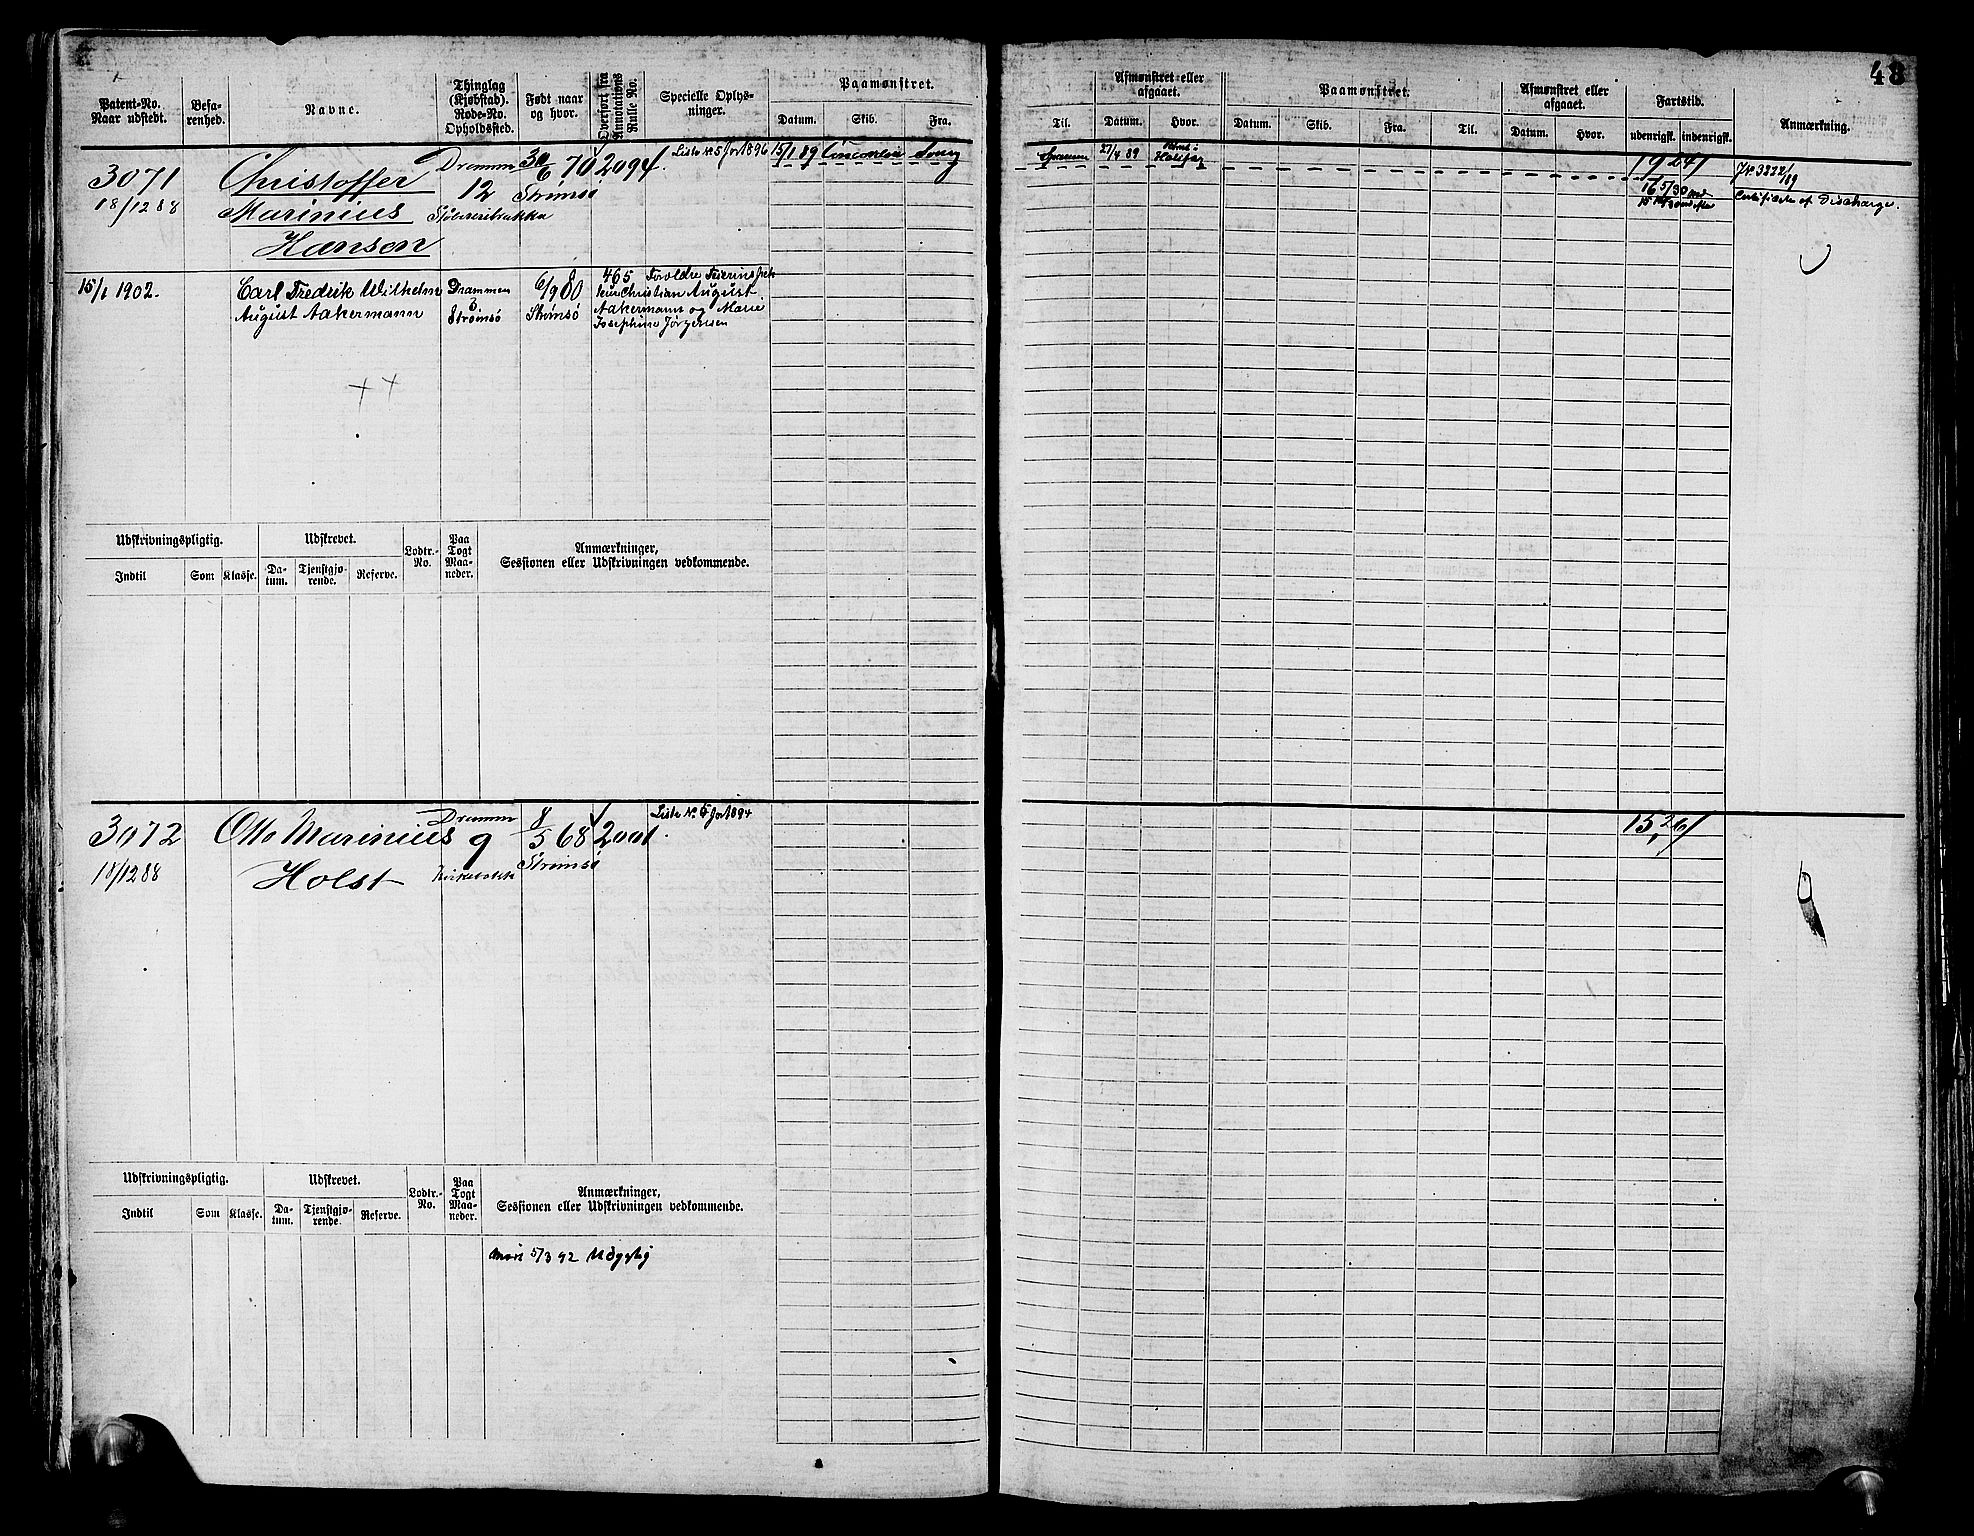 48
Patent-No. Naar udstedt.
Befarenhed.
Navne.
Thinglag (Kjøbstad). Rode-No. Opholdssted.
Født naar og hvor.
Overført fra Annotations Rulle No.
Specielle Oplysninger.
Paamønstret.
Datum. Skib. Fra.
Til.
Afmønstret eller afgaaet.
Datum. Hvor.
Paamønstret.
Datum. Skib. Fra. Til.
Afmønstret eller afgaaet.
Datum. Hvor.
Fartstid.
udenrigsk. indenrigsk.
Anmærkning.
3071 Christoffer Dramm 30/6 70 2094 Liste No 5 for 1896 15/1 89
18/12 88 Marinius 12 Strømsø
Hansen
27/4 89 Halifax
Certificate of Discharge.
15/1 1902. Carl Fredrik Wilhelm Drammen 6/9 80 465 Forældre
August Aakermann 3 Strømsø Christian August
Strømsø Aakermann og Marie
Josephine Jørgensen
Udskrivningspligtig. Udskrevet. Lodtr.-No. Paa Togt Maaneder. Anmærkninger,
Sessionen eller Udskrivningen vedkommende.
Indtil Som Klasse. Datum. Tjenstgjørende. Reserve.
3072 Otto Marinius Dramm 8/5 68 2001 Liste No 5 for 1894
9
18/12 88 Holst Strømsø
15,26
Udskrivningspligtig. Udskrevet. Lodtr.-No. Paa Togt Maaneder. Anmærkninger,
Sessionen eller Udskrivningen vedkommende.
Indtil Som Klasse. Datum. Tjenstgjørende. Reserve.
5/3 92